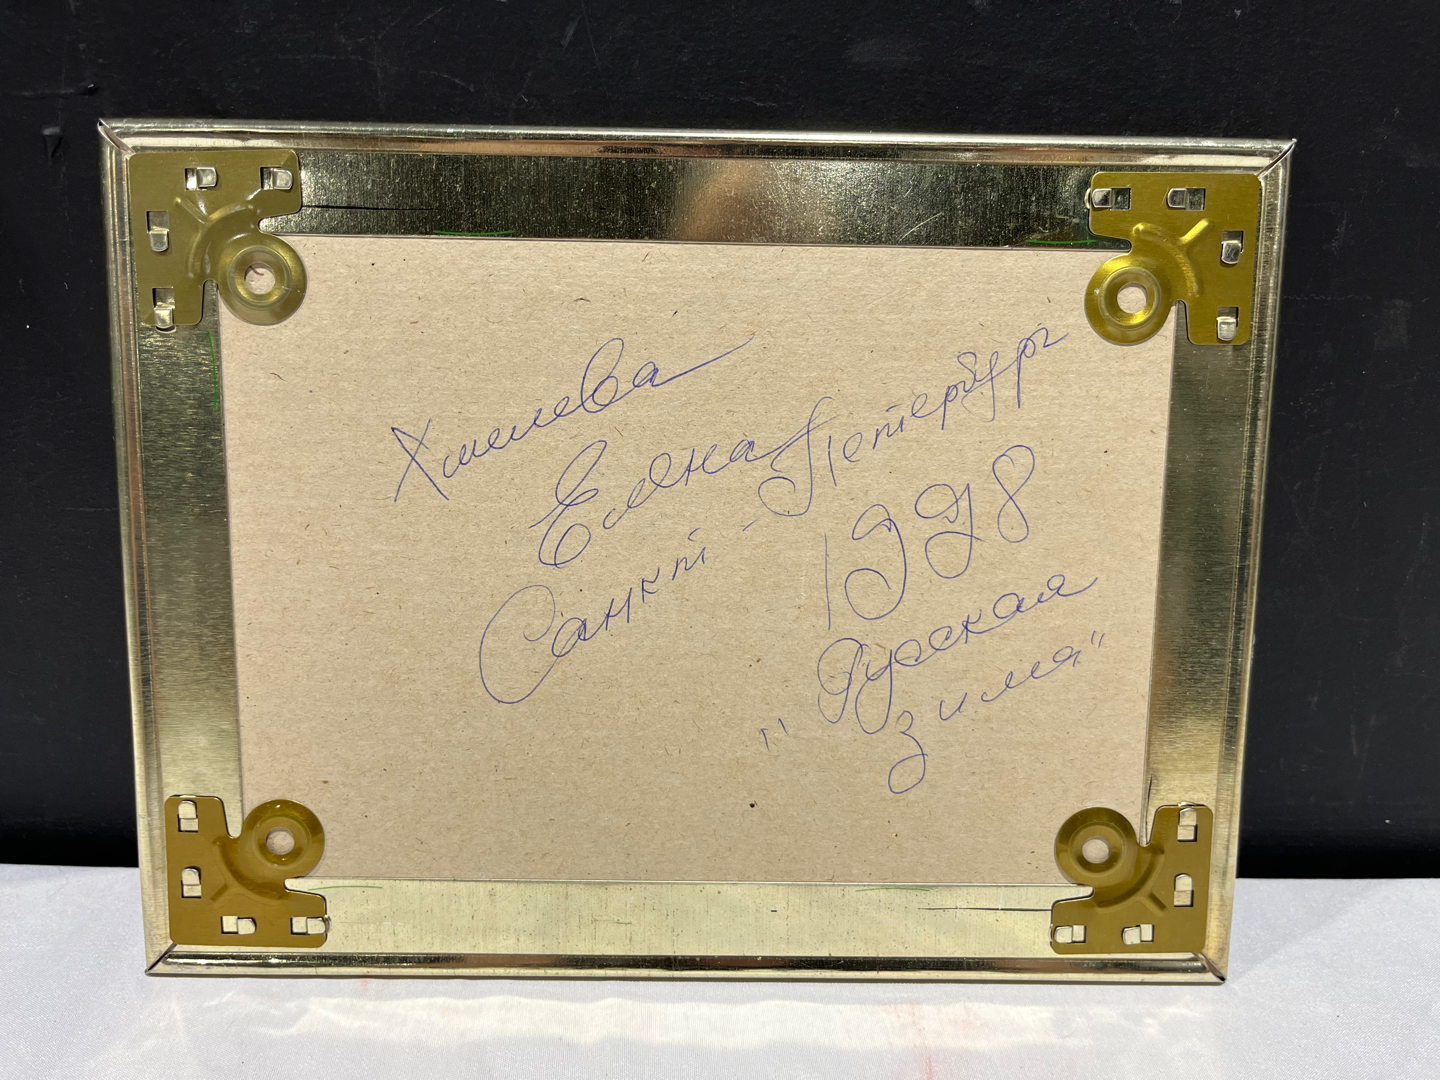 Хмелева
Елена
Санкт-Петербург
1998
"Русская
зима"